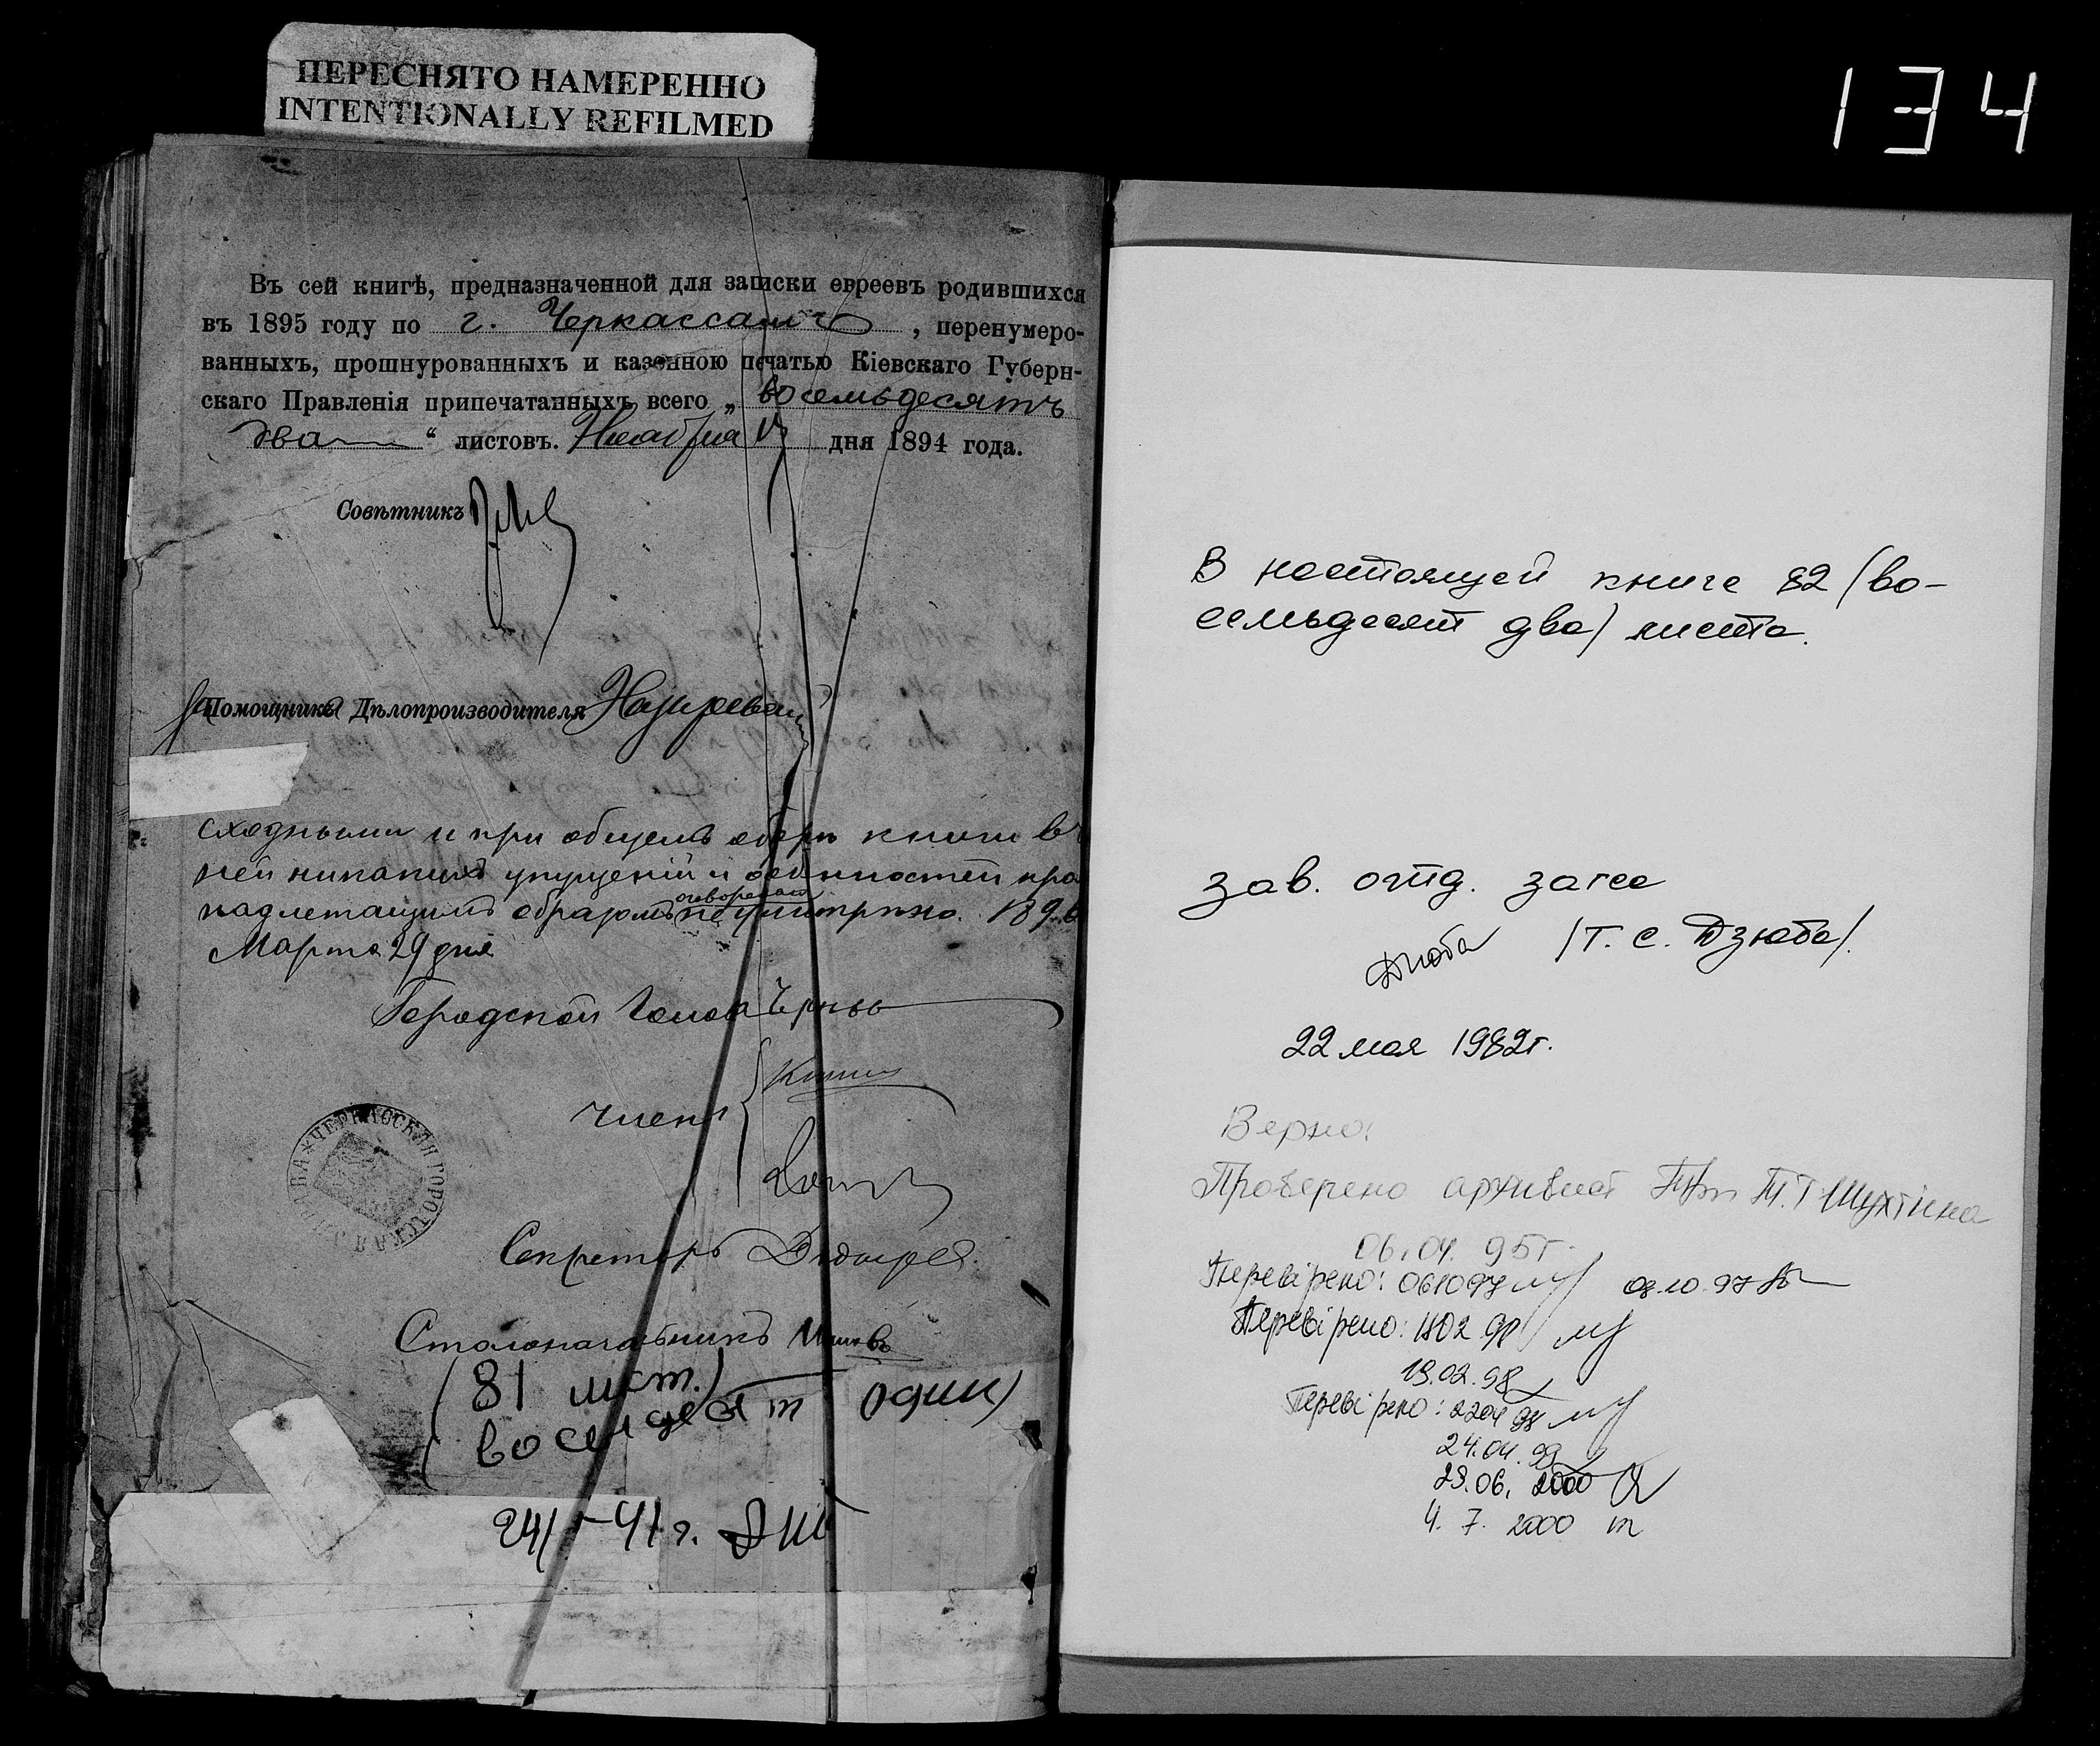 ПЕРЕСНЯТО НАМЕРЕННО
INTENTIONALLY REFILMED
134
Въ сей книгѣ, предназначенной для записки евреевъ родившихся
въ 1895 году по г. Черкассамъ, перенумеро-
ванныхъ, прошнурованныхъ и казенною печатью Кіевскаго Губерн-
скаго Правленія припечатанныхъ всего „восемьдесятъ
два“ листовъ. дня 1894 года.
Совѣтникъ
Помощника Дѣлопроизводителя
сходными и при общемъ обзорѣ книги въ
ней никакихъ упущеній и
надлежащимъ образомъ
Марта 29 дня
Городской Голова
Члены
ЧЕРКАССКАЯ ГОРОДСКАЯ УПРАВА
Секретарь
Столоначальникъ
(81 лист.)
(восемдесят один)
41 г.
В настоящей книге 82 (во-
семьдесят два) листа.
зав. отд. загса
(Т. С. Дзюба).
22 мая 1982г.
Верно:
Проверено архивист
06.04. 95г.
Перевірено: 061097 08.10.97
Перевірено: 1802 98
19.02.98
Перевірено: 2204 98
24.04.99
29.06. 2000
4. 7. 2000